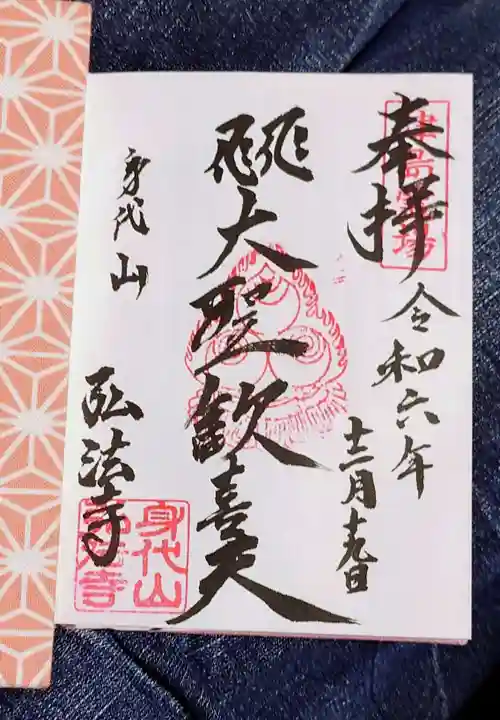 奉拝
令和六年
十二月十九日
大聖歓喜天
身代山
弘法寺
身代山
弘法寺